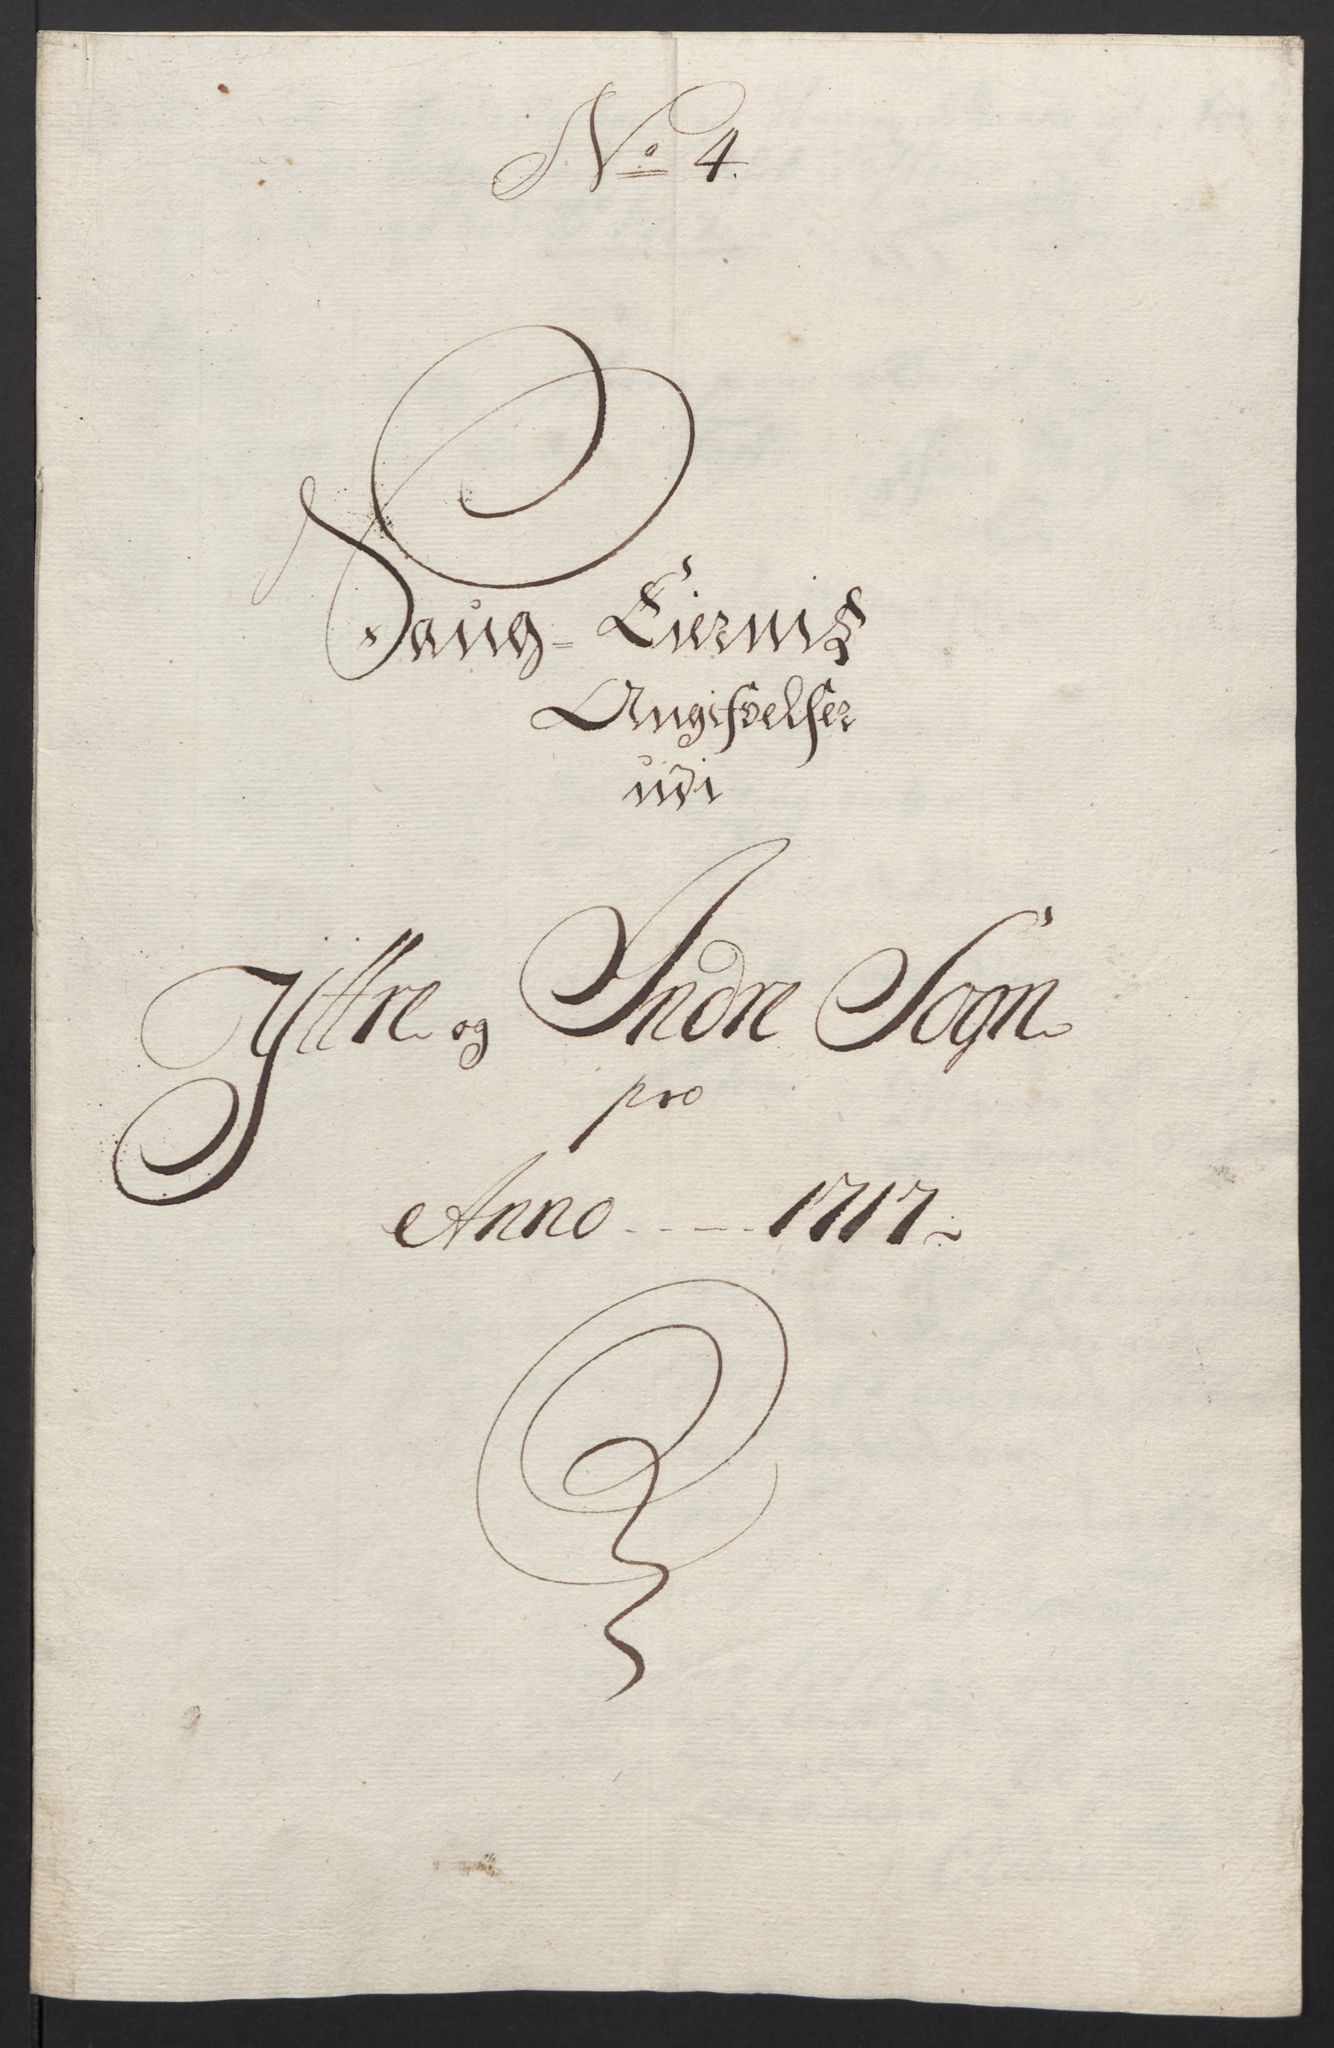 No 4.
Saug-Eiernis
Angifvelser
udi
Yttre og Indre Sogn
pro
Anno - - - - 1717